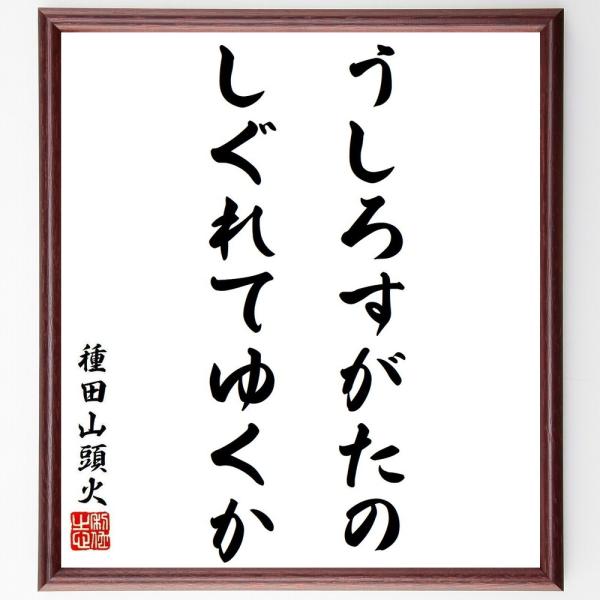 うしろすがたの
しぐれてゆくか
種田山頭火